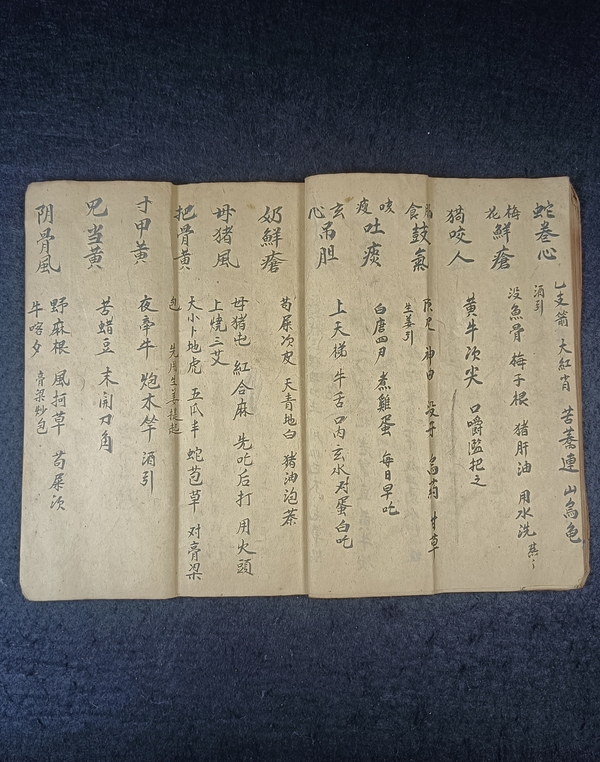 蛇卷心
乙支箭 大紅肖 苦蕎連 山烏龜
酒引
梅花鮮瘡
没魚骨 梅子根 猪肝油 用水洗
猫咬人
黄牛次尖 口嚼溫把之
食鼓氣
神曲 没子 甘草
生姜引
咳疫吐痰
白唐四刄 煮雞蛋 每日早吃
玄心吊胆
上天梯 牛舌口内玄水对蛋白吃
奶鮮瘡
苟屎次皮 天青地白 猪油泡茶
母猪風
母猪屯 紅合麻 先吃后打 用火頭
上燒三艾
把骨黄
大小卜地虎 五瓜半 蛇苞草 对膏梁
包 先用生姜提起
寸甲黄
夜牵牛 炮木竿 酒引
児当黄
苦蜡豆 末開刀角
阴骨風
野麻根 風柯草 苟屎次
牛喀夕 膏梁炒包